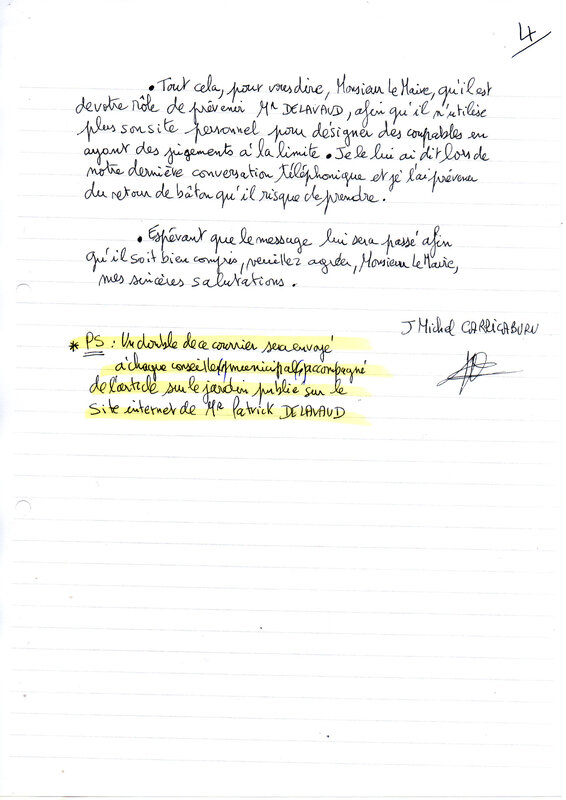 4
• Tout cela, pour vous dire, Monsieur Le Maire, qu'il est
de votre rôle de prévenir Mr DELAVAUD, afin qu'il n'utilise
plus son site personnel pour désigner des coupables en
ayant des jugements à la limite. Je le lui ai dit lors de
notre dernière conversation téléphonique et je l'ai prévenu
du retour de bâton qu'il risque de prendre.
• Espérant que le message lui sera passé afin
qu'il soit bien compris, veuillez agréer, Monsieur Le Maire,
mes sincères salutations.
J Michel CARRICABURU
* PS : Un double de ce courrier sera envoyé
à chaque conseiller municipal accompagné
de l'article sur le jardin public sur le
Site internet de Mr Patrick DELAVAUD